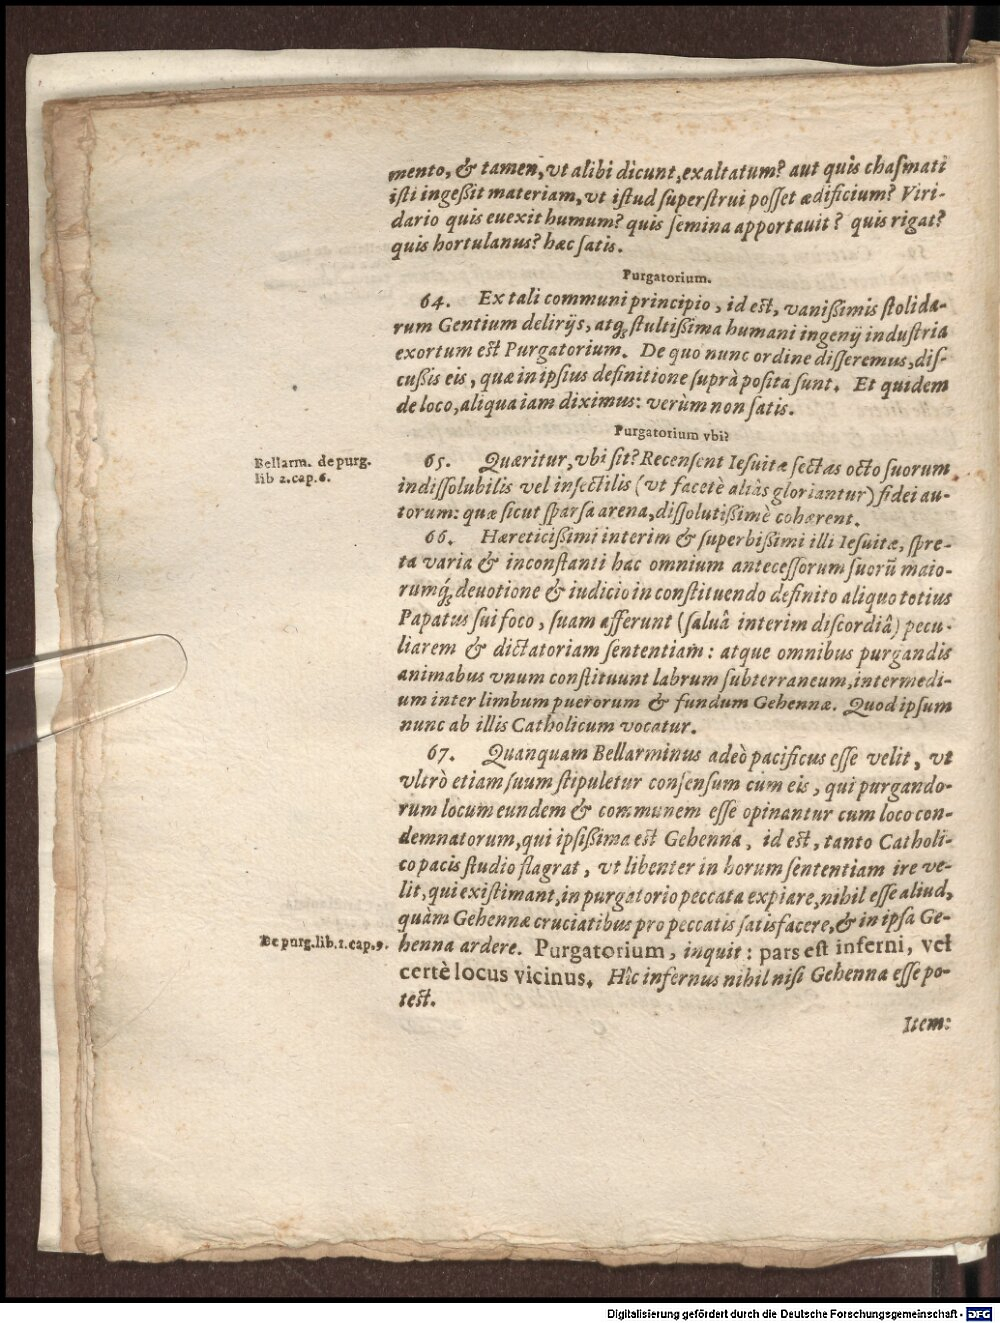 mento, & tamen, vt alibi dicunt, exaltatum? aut quis chaſmati
iſti ingeßit materiam, vt iſtud ſuperſtrui poſſet ædificium? Viri-
dario quis euexit humum? quis ſemina apportauit? quis rigat?
quis hortulanus? hæc ſatis.
Purgatorium.
64. Ex tali communi principio, id eſt, vanißimis ſtolida-
rum Gentium delirijs, atq; ſtultißima humani ingenij induſtria
exortum eſt Purgatorium. De quo nunc ordine diſſeremus, diſ-
cußis eis, quæ in ipſius definitione ſuprà poſita ſunt. Et quidem
de loco, aliqua iam diximus: verùm non ſatis.
Purgatorium vbi?
Bellarm. de purg.
lib 2. cap. 6.
65. Quæritur, vbi ſit? Recenſent Ieſuitæ ſectas octo ſuorum
indiſſolubilis vel inſectilis (vt facetè aliàs gloriantur) fidei au-
torum: quæ ſicut ſparſa arena, diſſolutißimè cohærent.
66. Hæreticißimi interim & ſuperbißimi illi Ieſuitæ, ſpre-
ta varia & inconſtanti hac omnium anteceſſorum ſuorū maio-
rumq́; deuotione & iudicio in conſtituendo definito aliquo totius
Papatus ſui foco, ſuam afferunt (ſaluâ interim diſcordiâ) pecu-
liarem & dictatoriam ſententiam: atque omnibus purgandis
animabus vnum conſtituunt labrum ſubterraneum, intermedi-
um inter limbum puerorum & fundum Gehennæ. Quod ipſum
nunc ab illis Catholicum vocatur.
67. Quanquam Bellarminus adeò pacificus eſſe velit, vt
vltrò etiam ſuum ſtipuletur conſenſum cum eis, qui purgando-
rum locum eundem & communem eſſe opinantur cum loco con-
demnatorum, qui ipſißima eſt Gehenna, id eſt, tanto Catholi-
co pacis ſtudio flagrat, vt libenter in horum ſententiam ire ve-
lit, qui exiſtimant, in purgatorio peccata expiare, nihil eſſe aliud,
quàm Gehennæ cruciatibus pro peccatis ſatisfacere, & in ipſa Ge-
De purg. lib. 2. cap. 9.
henna ardere. Purgatorium, inquit: pars eſt inferni, vel
certè locus vicinus. Hîc infernus nihil niſi Gehenna eſſe po-
teſt.
Item:
Digitalisierung gefördert durch die Deutsche Forschungsgemeinschaft - DFG